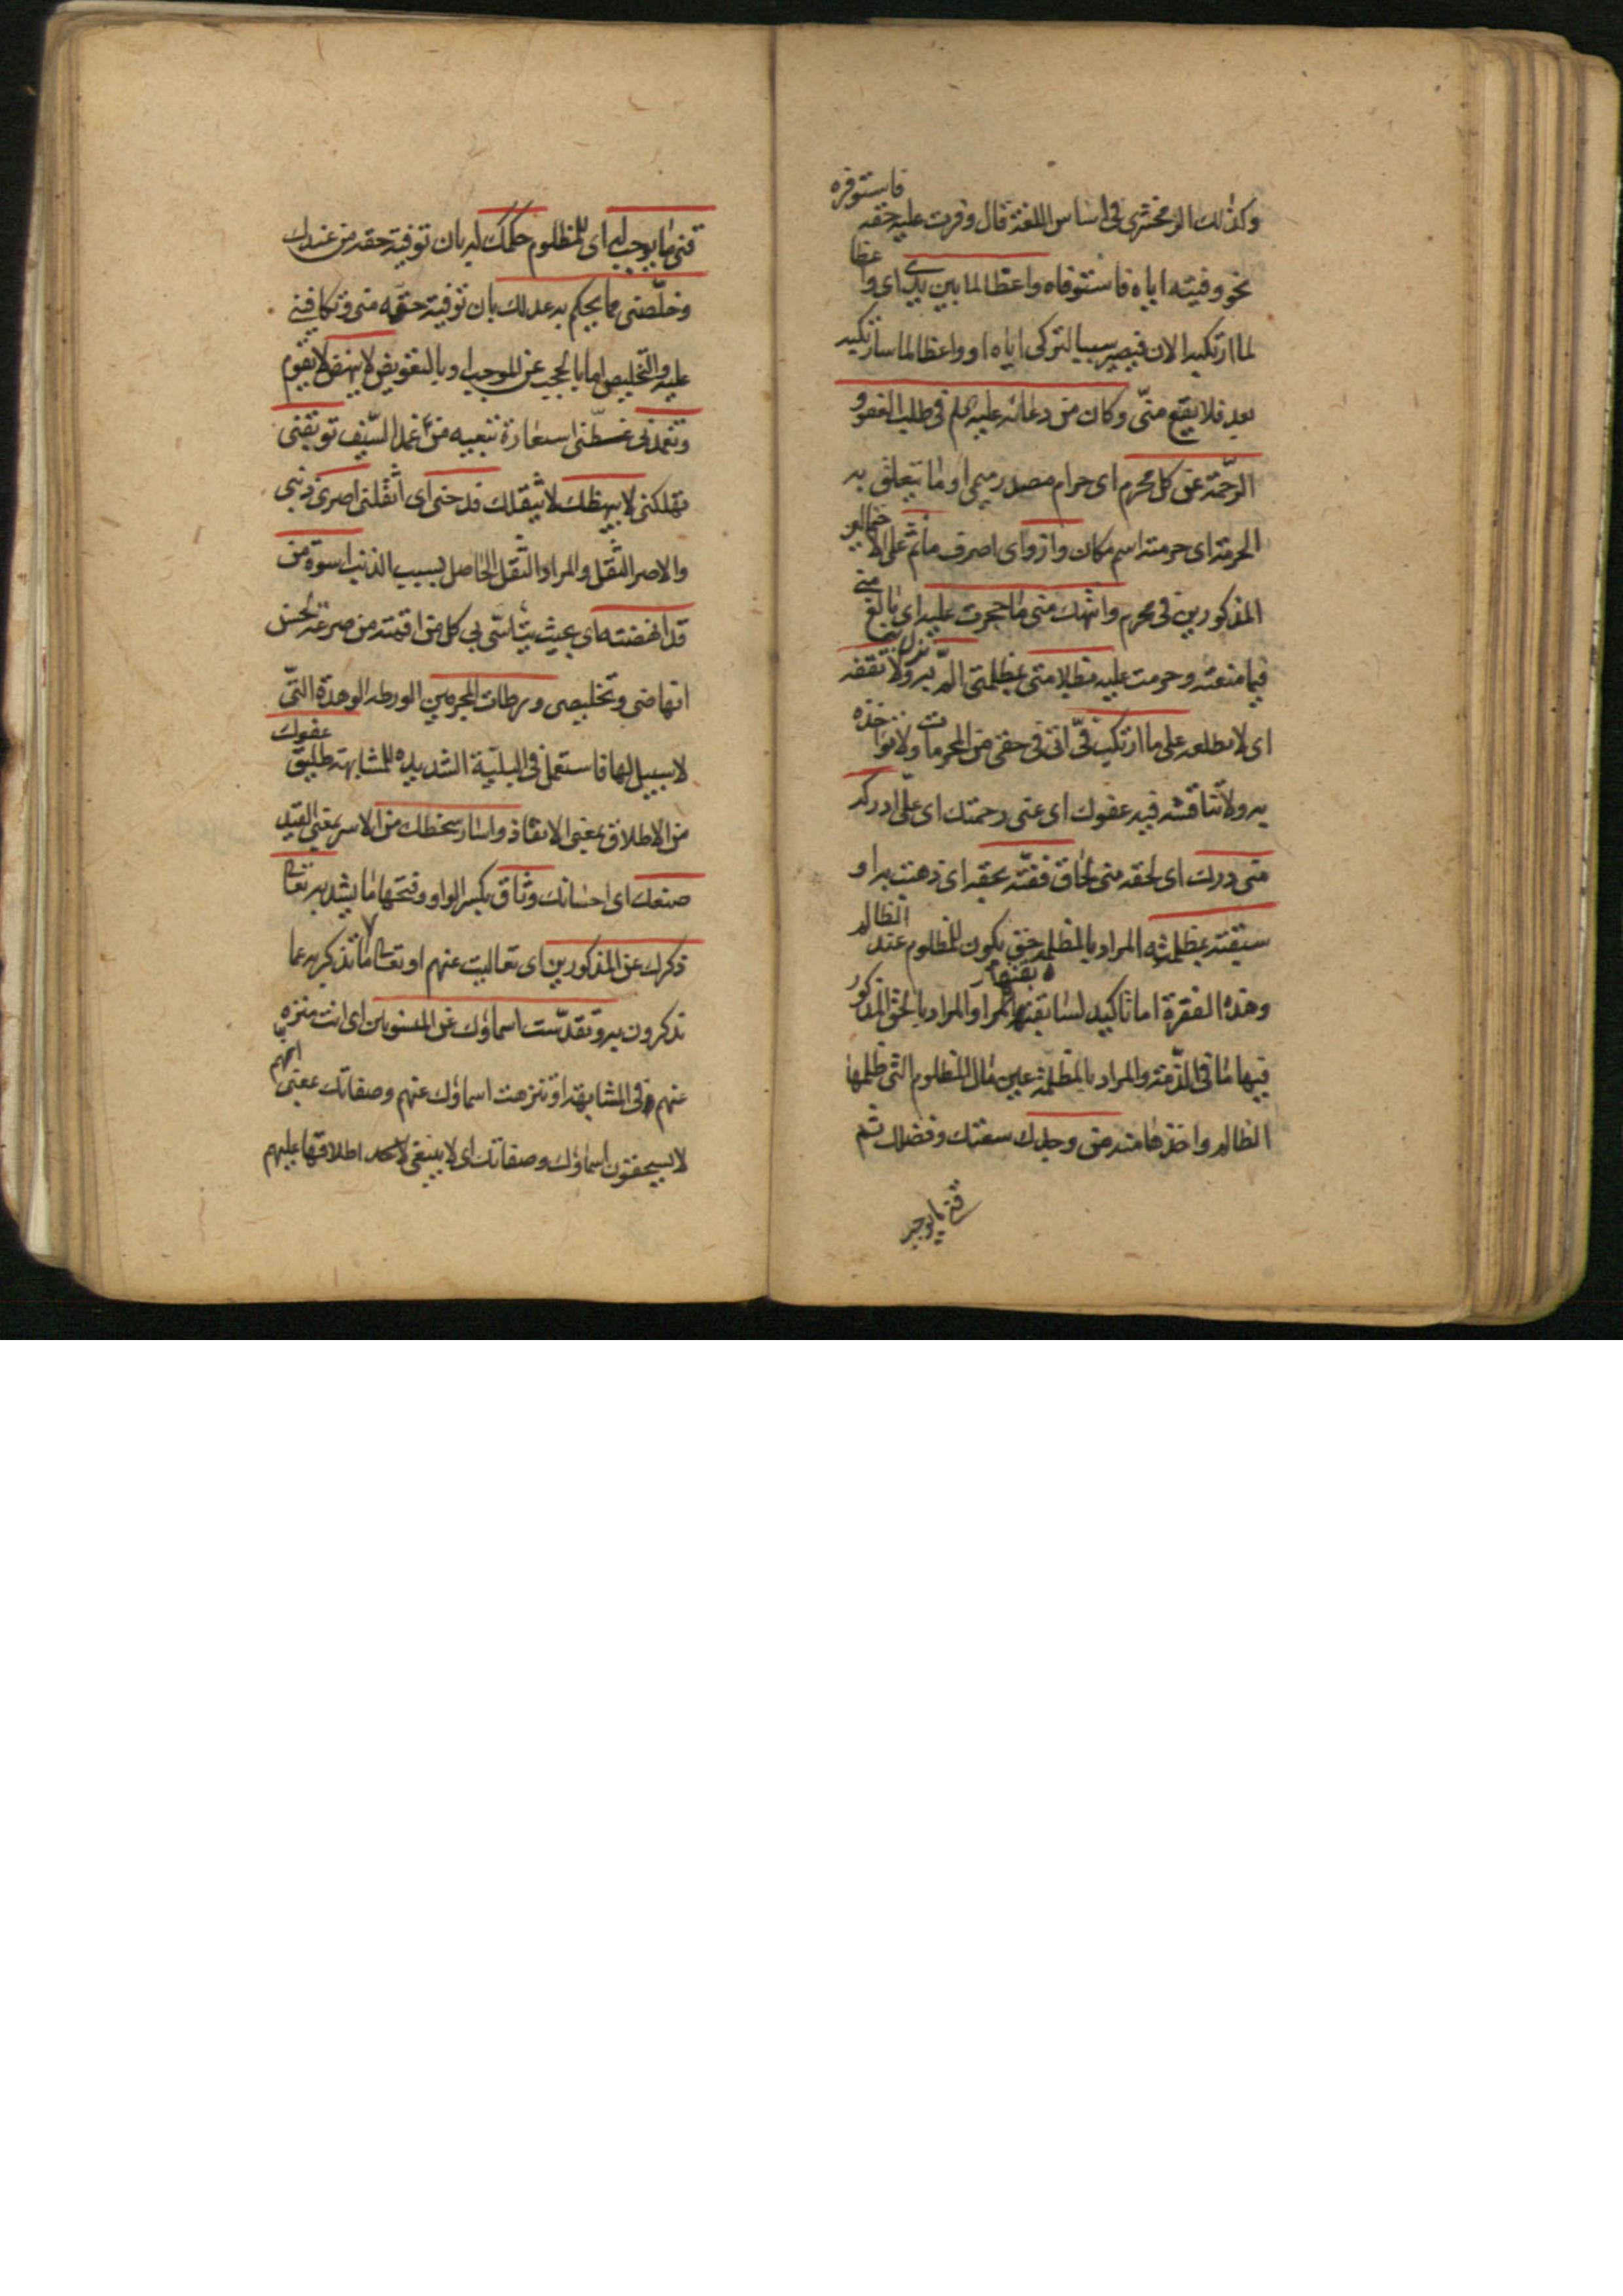 وكذلك الزمخشري في اساس اللغة قال وفرت عليه حقه فاستوفره
نحو وفيته اياه فاستوفاه واعظا لما بين يدي اى واعظا
لما ارتكبه الان فيصير سببا لتركى اياه او واعظا لما سارتكبه
بعد فلا يقع منّي وكان من دعائه عليه السلم في طلب العفو و
الرّحمة عن كل محرم اى حرام مصدر ميمى او ما يتعلق به
الحرمة اى حرمته اسم مكان وازو اى اصرف مأثم على الا
المذكورين في محرم وانتهك منى ما حجرت عليه اى بالغ
فيما منعته وحرمت عليه متى بظلمتى ولا تقفه
اى لا تطلعه على ما ارتكب فيّ اتى في حقى من المحرمات ولا تؤاخذه
به ولا تناقشه فيه عفوك اى عنى رحمتك اى علىّ ادركه
منى درك اى لحقه منى لحاق ففتّه بحقه اى ذهبت به او
سبقته بمظلمته المراد بالمظلمة حق يكون للمظلوم عند الظالم
وهذه الفقرة اما تاكيد لسابقتها او المراد بالحق المذكور
فيها ما في الذّمة والمراد بالمظلمة عين مال المظلوم التى ظلمها
الظالم واخذها منه من وجدك سعتك وفضلك ثم
قنى ما يوجب
قنى ما يوجب له اى للمظلوم حكمك له بان توفيه حقه من عندك
وخلّصنى مما يحكم به عدلك بان توفيه حقه منى وتكافينى
عليه والتخليص اما عن الموجب او بالتعويض لا ينهض لا يقوم
وتغمدنى غطّنى استعارة تبعية من غمد السّيف توبقنى
تهلكنى لا يبهظك لا يثقلك فدحنى اى اثقلنى اصرى ذنبى
والاصر الثقل والمراد الثقل الحاصل بسبب الذنب اسوة من
قد انهضته اى بحيث يتأسّى بى كل من اقمته من صرعته لحسن
انهاضى وتخليصى ورطات المجرمين الورطه الوهدة التى
لا سبيل لها فاستعمل في البلية الشديده للمشابهة طليق عفوك
من الاطلاق بمعنى الانقاذ واسار سخطك من الاسر بمعنى القيد
صنعك اى احسانك وثاق بكسر الواو وفتحها ما يشد به تعالى
ذكرك عن المذكورين اى تعاليت عنهم او تعالى ما تذكر به عما
تذكرون به وتقدّست اسماؤك عن المنسوبين اى انت منزه
عنهم في المشابهة او تنزهت اسماؤك عنهم وصفاتك بمعنى انهم
لا يستحقون اسماؤك وصفاتك اى لا ينبغى لاحد اطلاقها عليهم